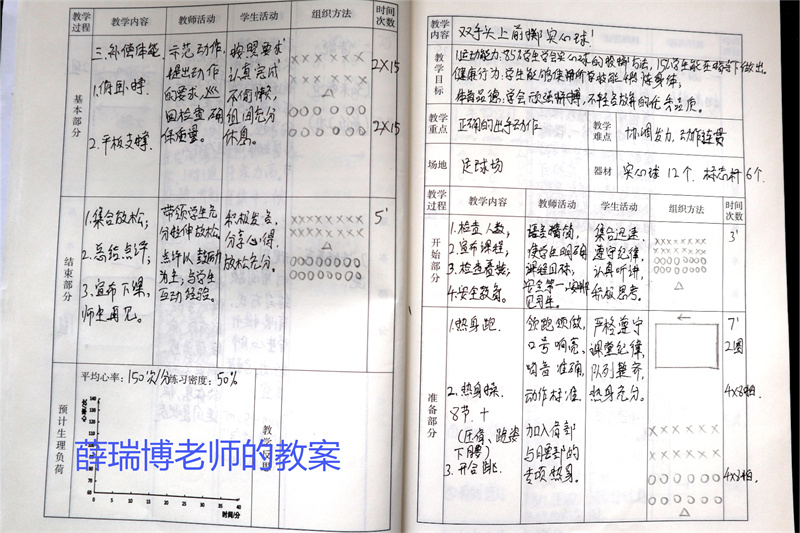 教学过程 教学内容 教师活动 学生活动 组织方法 时间次数
基本部分
三.补偿体能
1.俯卧撑
2.平板支撑.
示范动作,
提出动作
的要求,巡
回检查确
保质量。
按照要求
认真完成
不偷懒,
组间充分
休息。
2×15
2×15
结束部分
1.集合放松;
2.总结点评;
3.宣布下课,
师生再见。
带领学生充
分拉伸放松,
点评以鼓励
为主,与学生
互动经验。
积极发言,
分享心得,
放松充分。
5'
预计生理负荷
平均心率:150次/分 练习密度:50%
心率/次
140
130
120
110
100
90
80
70
60
0 5 10 15 20 25 30 35 40
时间/分
薛瑞博老师的教案
教学内容 双手头上前掷实心球
教学目标
健康行为:学生能够
教学重点 正确的出手动作 教学难点 协调发力,动作连贯
场地 足球场 器材 实心球12个,标志杆6个.
教学过程 教学内容 教师活动 学生活动 组织方法 时间次数
开始部分
1.检查人数;
2.宣布课程;
3.检查着装;
4.安全教育。
语言精简,
使学生明确
课程目标,
安全第一,安排
见习生。
集合迅速,
遵守纪律,
认真听讲,
积极思考。
3'
准备部分
1.热身跑.
2.热身操.
8节.+
(压肩、跪姿
下腰)
3.开合跳.
领跑领做,
口号响亮,
动作标准,
加入肩部
与腰部的
专项热身。
严格遵守
课堂纪律,
队列整齐,
热身充分。
7'
2圈
4×8拍.
4×8拍.